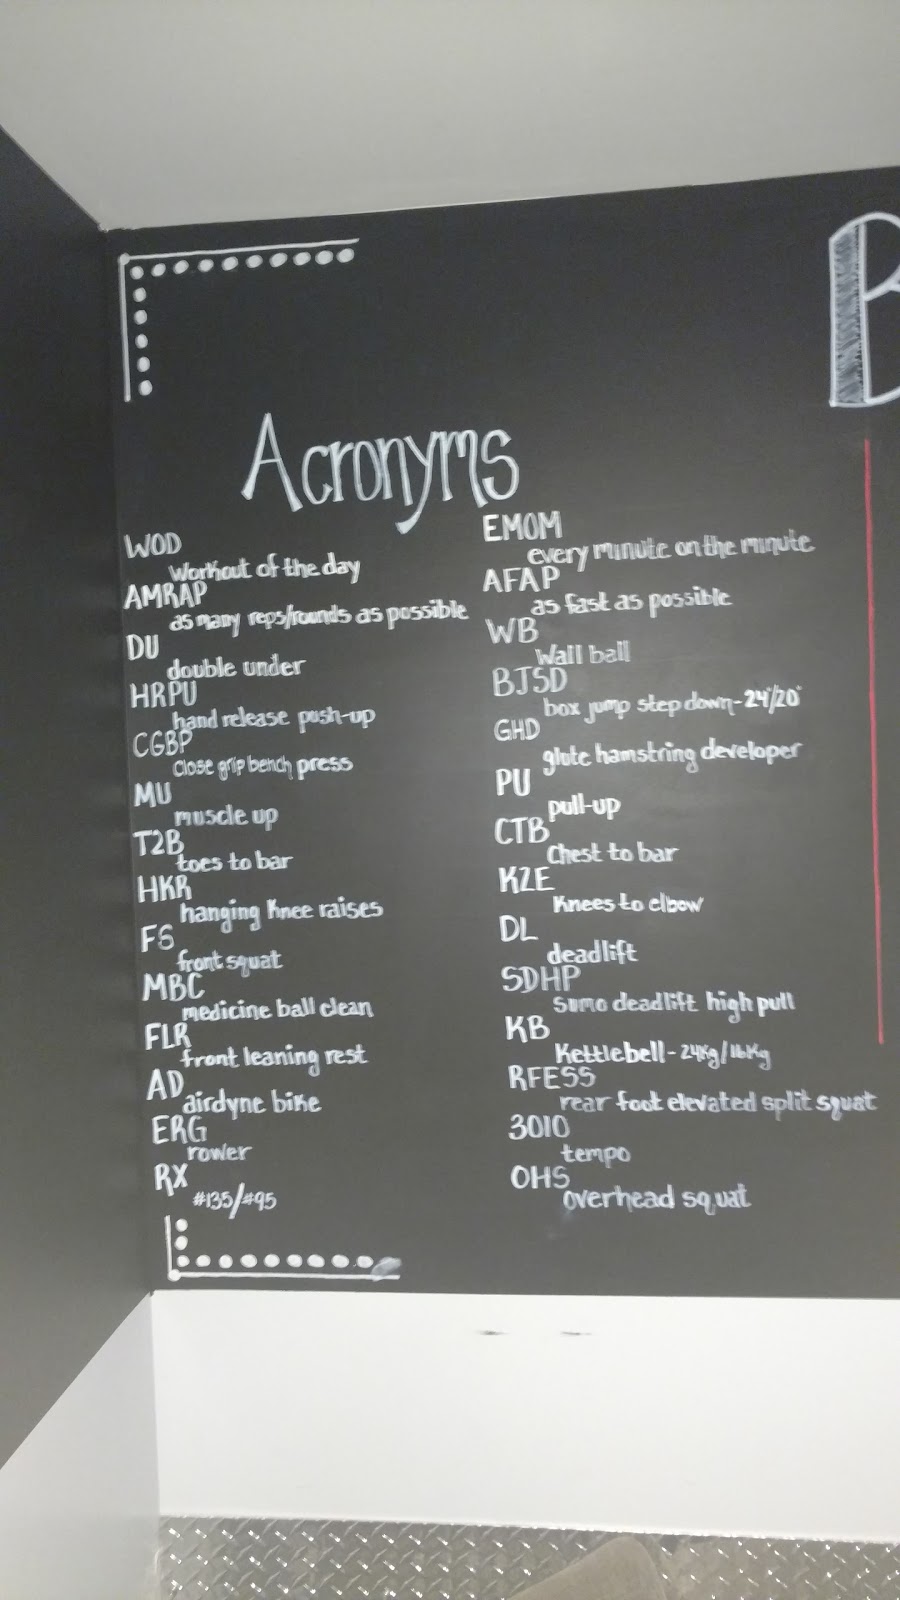 Acronyms
WOD
Workout of the day
AMRAP
as many reps/rounds as possible
DU
double under
HRPU
hand release push-up
CGBP
Close grip bench press
MU
muscle up
T2B
toes to bar
HKR
hanging Knee raises
FS
front squat
MBC
medicine ball clean
FLR
front leaning rest
AD
airdyne bike
ERG
rower
RX
#135/#95
EMOM
every minute on the minute
AFAP
as fast as possible
WB
Wall ball
BJSD
box jump step down-24"/20"
GHD
glute hamstring developer
PU
pull-up
CTB
Chest to bar
K2E
Knees to elbow
DL
deadlift
SDHP
sumo deadlift high pull
KB
Kettlebell-24Kg/16Kg
RFESS
rear foot elevated split squat
3010
tempo
OHS
overhead squat